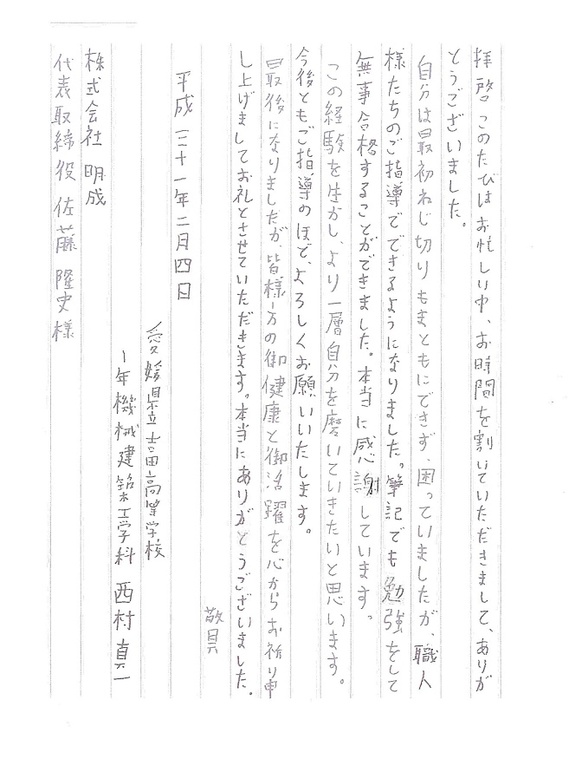 拝啓 このたびはお忙しい中、お時間を割いていただきまして、ありが
とうございました。
自分は最初ねじ切りもまともにできず、困っていましたが、職人
様たちのご指導でできるようになりました。筆記でも勉強をして
無事合格することができました。本当に感謝しています。
この経験を生かし、より一層自分を磨いていきたいと思います。
今後ともご指導のほど、よろしくお願いいたします。
最後になりましたが、皆様方の御健康と御活躍を心からお祈り申
し上げましてお礼とさせていただきます。本当にありがとうございました。
敬具
平成三十一年二月四日
愛媛県立吉田高等学校
一年機械建築工学科 西村真一
株式会社 明成
代表取締役 佐藤隆史様